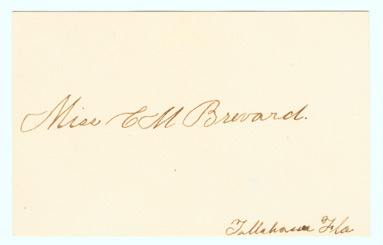 Miss C M Brevard.
Tallahassee Fla